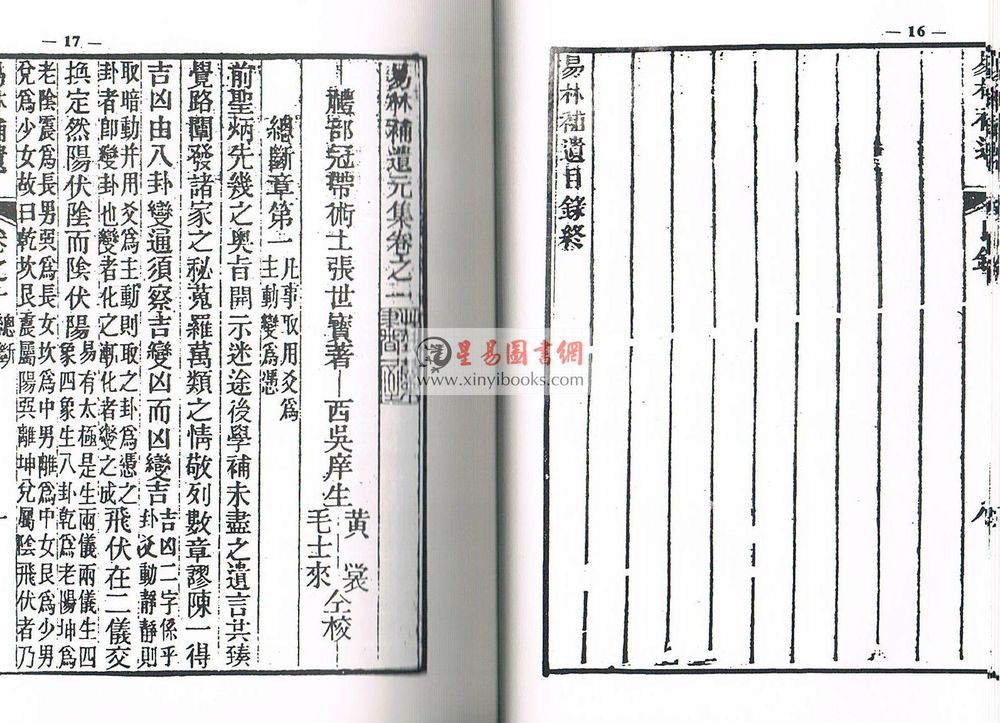 — 16 —
易林補遺目錄終
— 17 —
易林補遺元集卷之一
體部冠帶術士張世寶著 西吳庠生
黃裳
毛士來
仝校
總斷章第一
凡事取用爻為
主動變為憑
前聖炳先幾之奧旨開示迷途後學補未盡之遺言共臻
覺路闡發諸家之秘蒐羅萬類之情敬列數章謬陳一得
吉凶由八卦變通須察吉變凶而凶變吉
吉凶二字係乎
卦爻動靜靜則
取暗動并用爻為主動則取之卦為憑之
卦者即變卦也變者化之漸化者變之成
飛伏在二儀交
換定然陽伏陰而陰伏陽
易有太極是生兩儀兩儀生四
象四象生八卦乾為老陽坤為
老陰震為長男巽為長女坎為中男離為中女艮為少男
兌為少女故曰乾坎艮震屬陽巽離坤兌屬陰飛伏者乃
易林補遺
卷之一
總斷
一
星易圖書網
www.xinyibooks.com